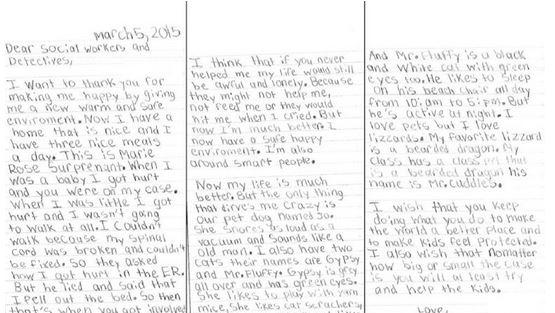 march 5, 2015
Dear Social workers and
Detectives,
I want to thank you for
making me happy by giving
me a new warm and safe
enviroment. Now I have a
home that is nice and I
have three nice meals
a day. This is Marie
Rose Surprenant. When I
was a baby I got hurt
and you were on my case.
When I was little I got
hurt and I wasn't going
to walk at all. I couldn't
walk because my spinal
cord was broken and couldn't
be fixed. So they asked
how I got hurt in the ER.
But he lied and said that
I fell out the bed. So then
that's when you got involved
I think that if you never
helped me my life would still
be awful and lonely. Because
they might not help me,
not feed me or they would
hit me when I cried. But
now I'm much better. I
now have a safe happy
enviroment. I'm also
around smart people.
Now my life is much
better. But the only thing
that drives me crazy is
our pet dog named Jo.
She snores as loud as a
vacuum and sounds like a
old man. I also have two
cats their names are Gypsy
and Mr. Fluffy. Gypsy is grey
all over and has green eyes.
She likes to play with yarn
mice, She likes cat scrachers,
And Mr. Fluffy is a black
and white cat with green
eyes too. He likes to sleep
on his beach chair all day
from 10: am to 5: pm. But
he's active at night. I
love pets but I love
lizzards. My favorite lizzard
is a bearded dragon. My
class has a class pet that
is a bearded dragon his
name is Mr. cuddles.
I wish that you keep
doing what you do to make
the world a better place and
to make kids feel Protected.
I also wish that nomatter
how big or small the case
is you will at least try
and help the kids.
Love,